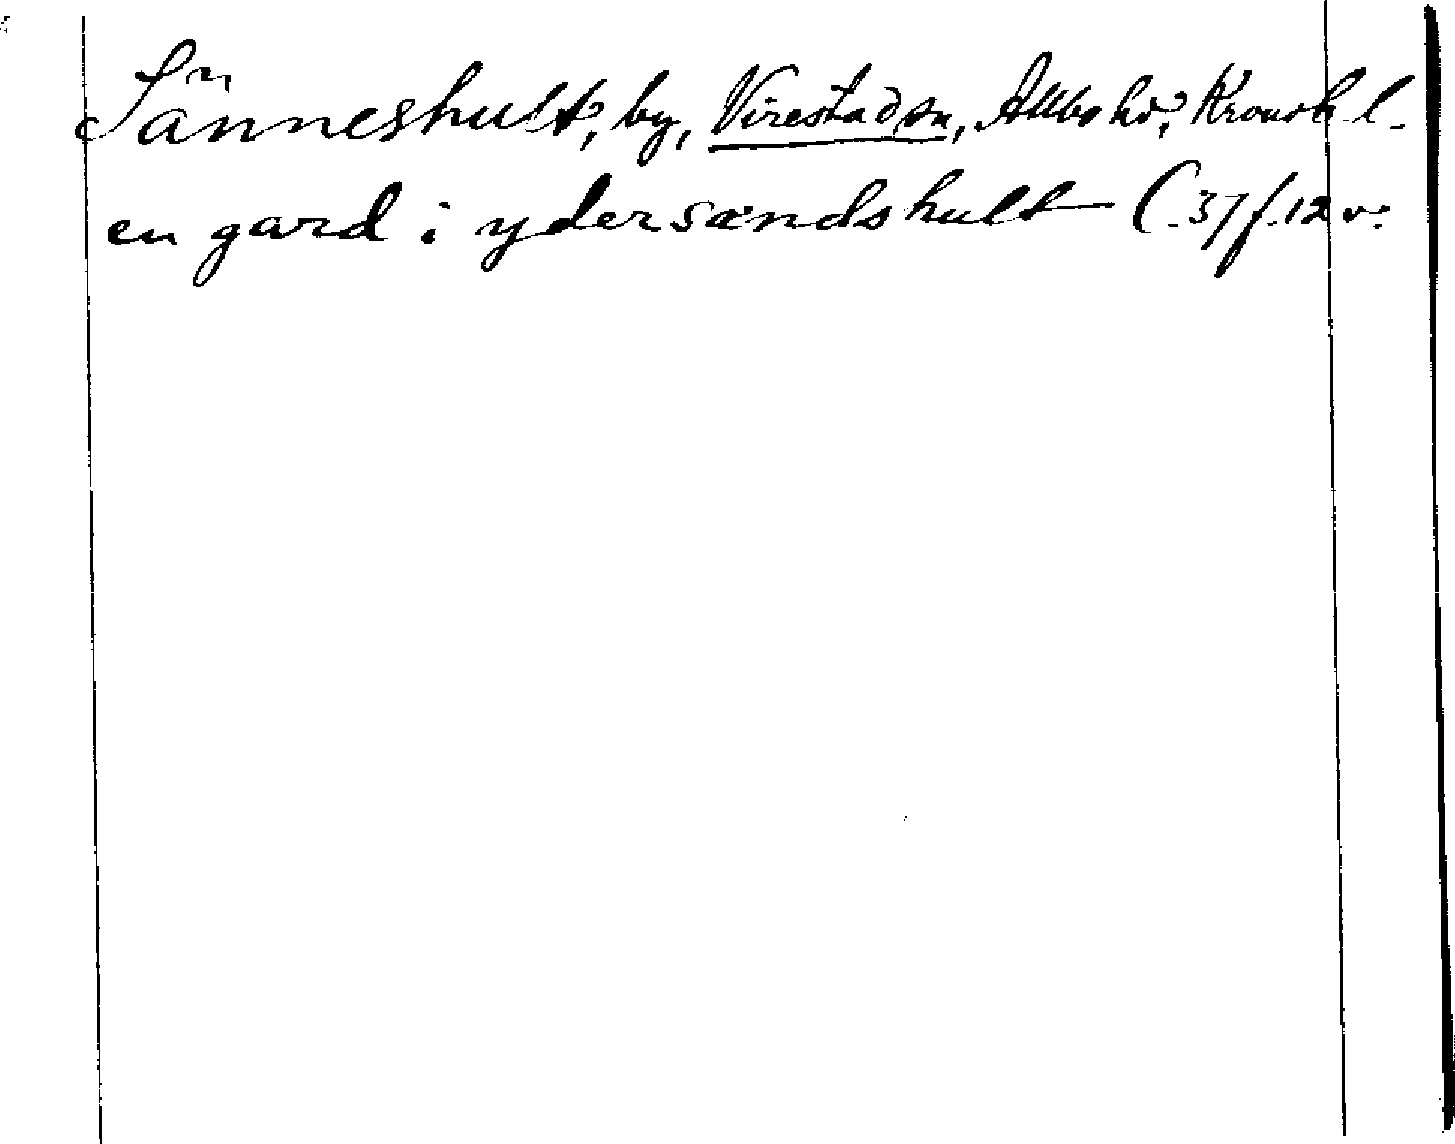 Sänneshult, by, Virestad sn, Allbo hd, Kronob. l.
en gard i ydersandshult C 37 f. 12 v.